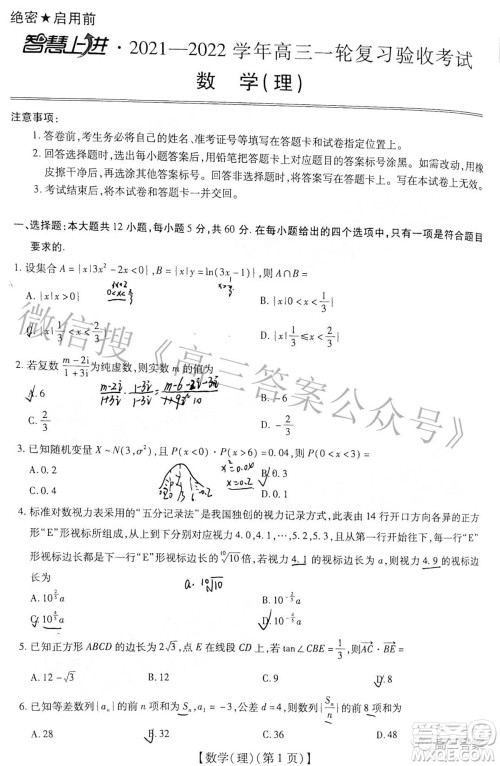 绝密★启用前
智慧上进·2021—2022学年高三一轮复习验收考试
数 学(理)
注意事项:
1. 答卷前,考生务必将自己的姓名、准考证号等填写在答题卡和试卷指定位置上。
2. 回答选择题时,选出每小题答案后,用铅笔把答题卡上对应题目的答案标号涂黑。如需改动,用橡
皮擦干净后,再选涂其他答案标号。回答非选择题时,将答案写在答题卡上。写在本试卷上无效。
3. 考试结束后,将本试卷和答题卡一并交回。
一、选择题:本大题共 12 小题,每小题 5 分,共 60 分. 在每小题给出的四个选项中,只有一项是符合题目
要求的.
1. 设集合 A={x|3x²-2x<0},B={x|y=ln(3x-1)},则 A∩B=
A. {x|x>0} B. {x|0<x<1/3}
C. {x|1/3<x<2/3} D. {x|0<x<2/3}
2. 若复数 (m-2i)/(1+3i) 为纯虚数,则实数 m 的值为
A. 6 B. -6
C. 2/3 D. -2/3
3. 已知随机变量 X~N(3,σ²),且 P(X<0)·P(X>6)=0.04,则 P(0<X<3)=
A. 0.2 B. 0.3
C. 0.4 D. 0.6
4. 标准对数视力表采用的“五分记录法”是我国独创的视力记录方式,此表由 14 行开口方向各异的正方
形“E”形视标所组成,从上到下分别对应视力 4.0,4.1,…,5.2,5.3,且从第一行开始往下,每一行“E”
形视标边长都是下一行“E”形视标边长的 ¹⁰√10 倍. 若视力 4.1 的视标边长为 a,则视力 4.9 的视标边长
为
5. 已知正方形 ABCD 的边长为 2√3,点 E 在线段 CD 上,若 tan∠CBE=1/3,则 AC·BE=
A. 12-√3 B. 12 C. 9 D. 8
6. 已知等差数列{aₙ}的前 n 项和为 Sₙ,a₁=-3,公差 d=2,则数列{Sₙ/n}的前 8 项和为
A. 28 B. 4 C. 36 D. 48
【数学(理)(第 1 页)】
微信搜《高三答案公众号》